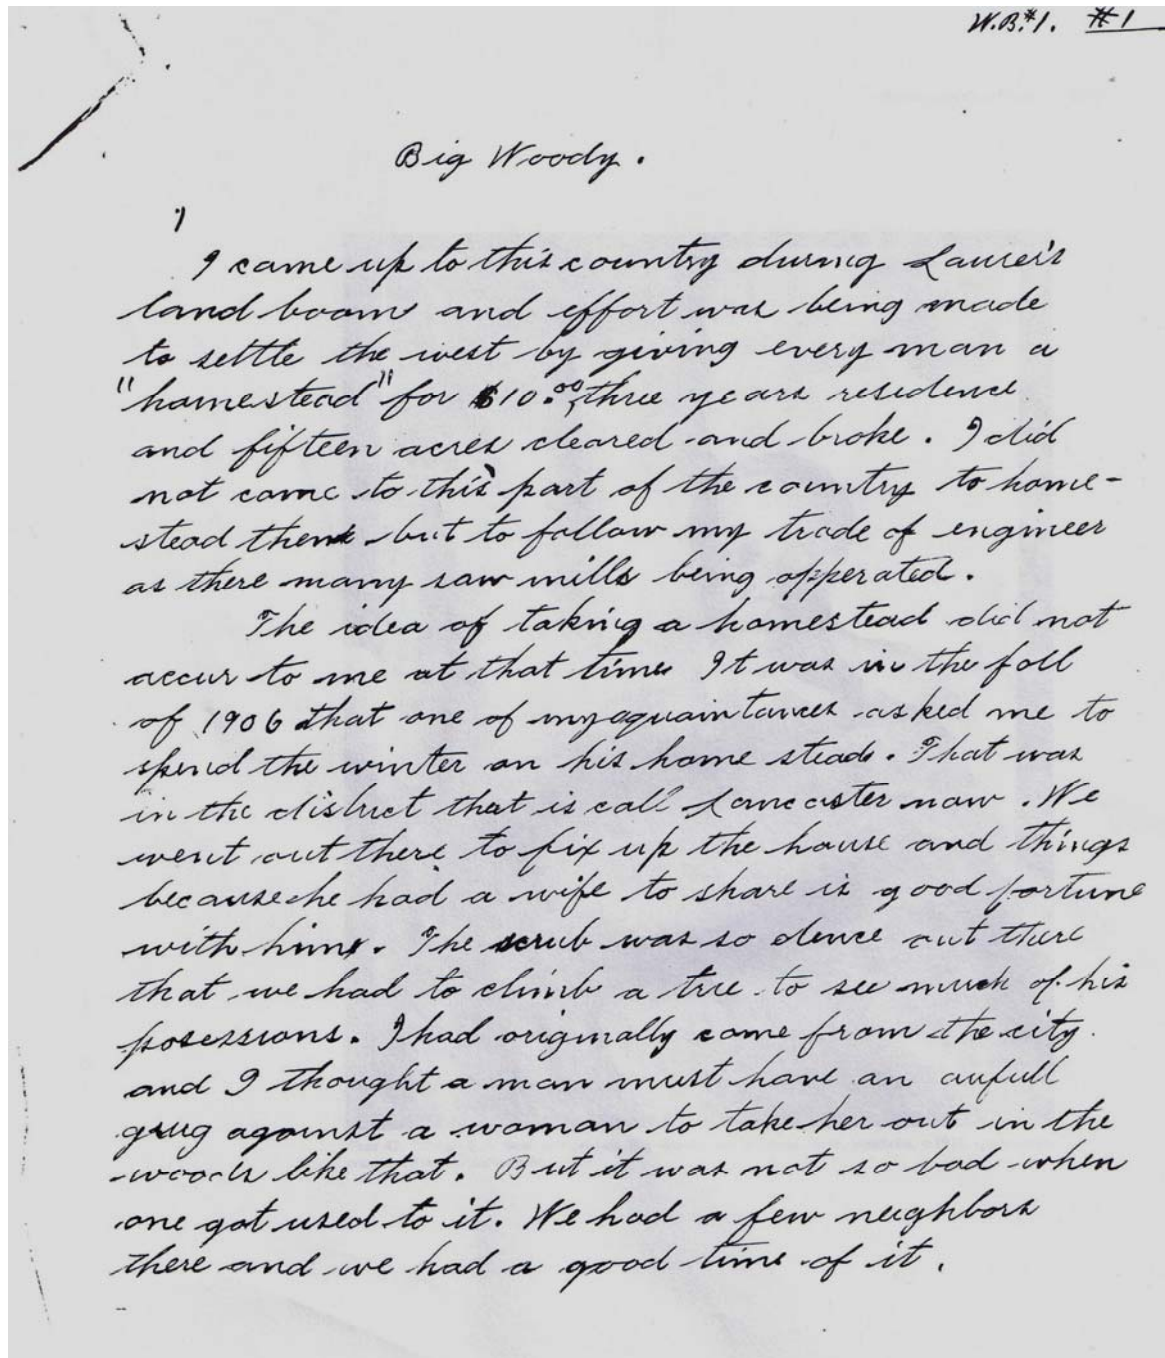 W.B.#1. #1
Big Woody.
I came up to this country during Laurei's
land boom and effort was being made
to settle the west by giving every man a
"homestead" for $10.00, three years residence
and fifteen acres cleared and broke. I did
not come to this part of the country to home-
stead then but to follow my trade of engineer
as there many saw mills being opperated.
The idea of taking a homestead did not
occur to me at that time It was in the fall
of 1906 that one of my aquaintances asked me to
spend the winter on his home stead. That was
in the district that is call Lancaster now. We
went out there to fix up the house and things
because he had a wife to share is good fortune
with him. The scrub was so dence out there
that we had to climb a tree to see much of his
posessions. I had originally come from the city
and I thought a man must have an aufull
grug against a woman to take her out in the
woods like that. But it was not so bad when
one got used to it. We had a few neighbors
there and we had a good time of it.